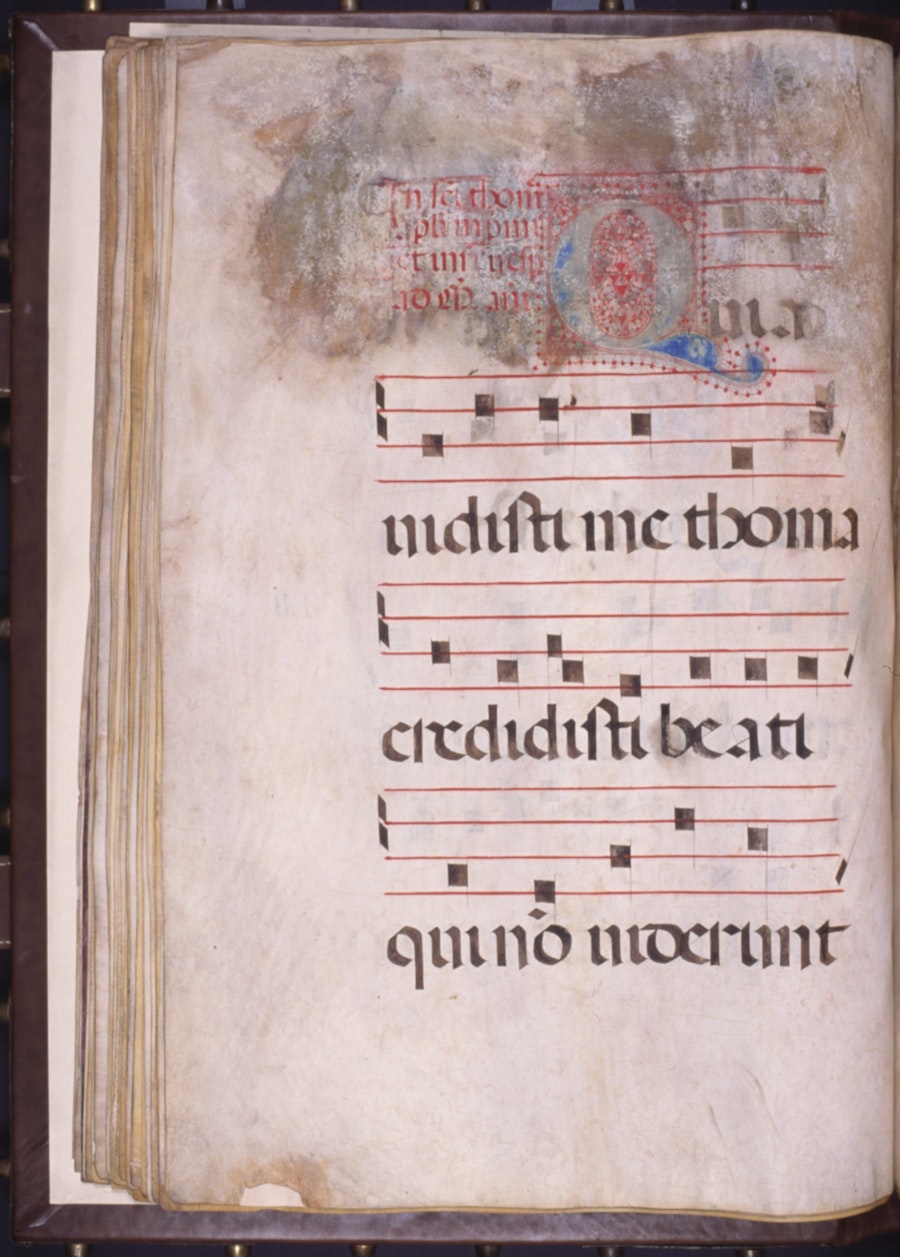 In sci thom
apli in prim
et in sc̄ijs vesp
ad m̄ an̄
Quia
uidisti me thoma
credidisti beati
qui nō uiderunt